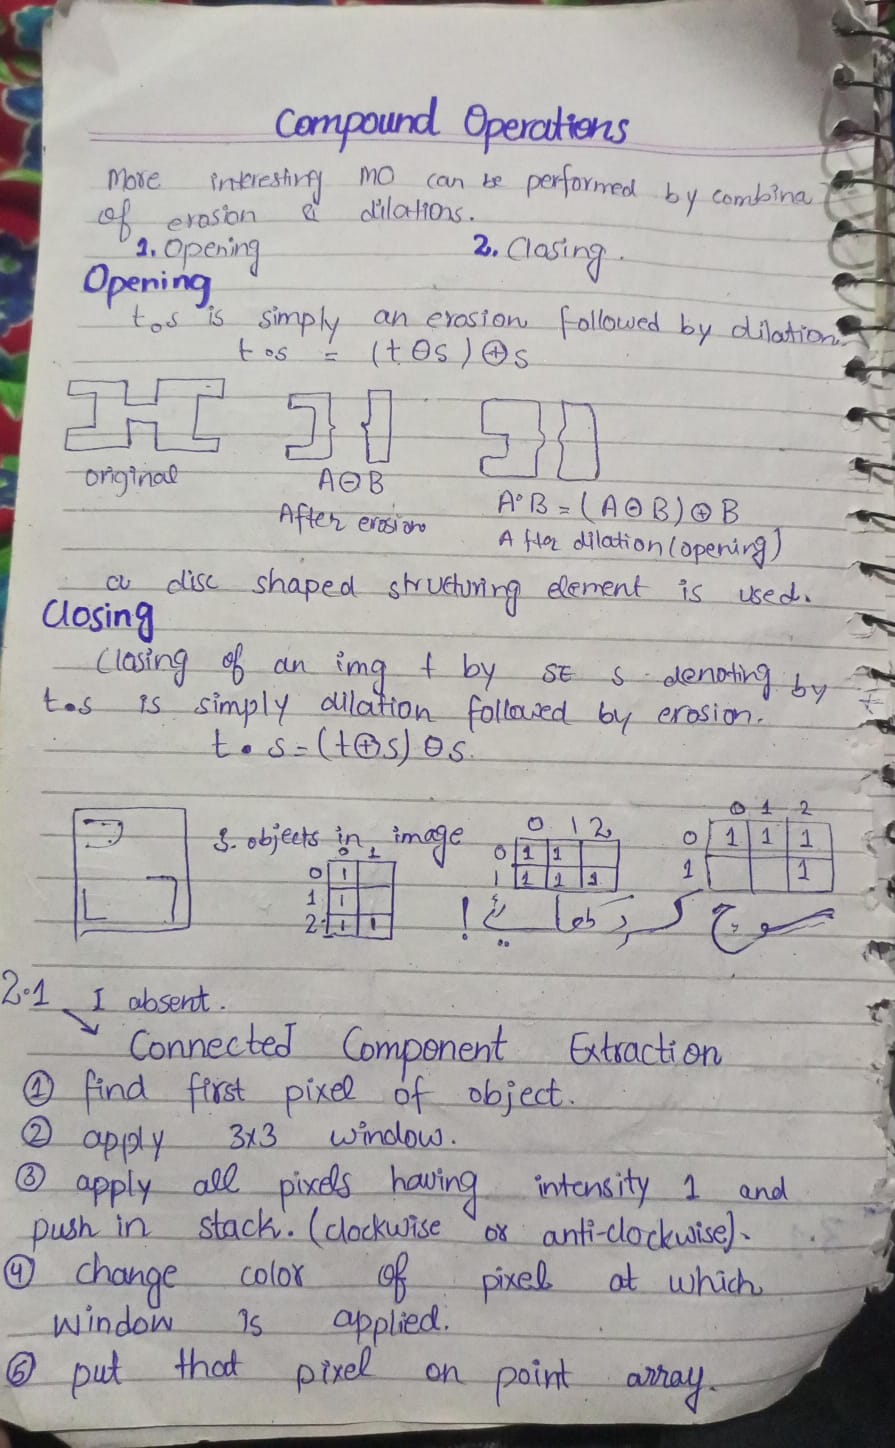 Compound Operations
More interesting MO can be performed by combina
of erosion & dilations.
1. Opening 2. Closing.
Opening
t∘s is simply an erosion followed by dilation.
t∘s = (t⊖s)⊕s
original
A⊖B
After erosion
A∘B = (A⊖B)⊕B
After dilation (opening)
a disc shaped structuring element is used.
Closing
Closing of an img f by SE s denoting by
t•s is simply dilation followed by erosion.
t•s = (t⊕s)⊖s.
3. objects in image
0 1
0 1
1 1
2 1 1
0 1 2
0 1 1
1 1 1 1
0 1 2
0 1 1 1
1 1
2.1 I absent.
Connected Component Extraction
① find first pixel of object.
② apply 3x3 window.
③ apply all pixels having intensity 1 and
push in stack. (clockwise or anti-clockwise).
④ change color of pixel at which
window is applied.
⑤ put that pixel on point array.